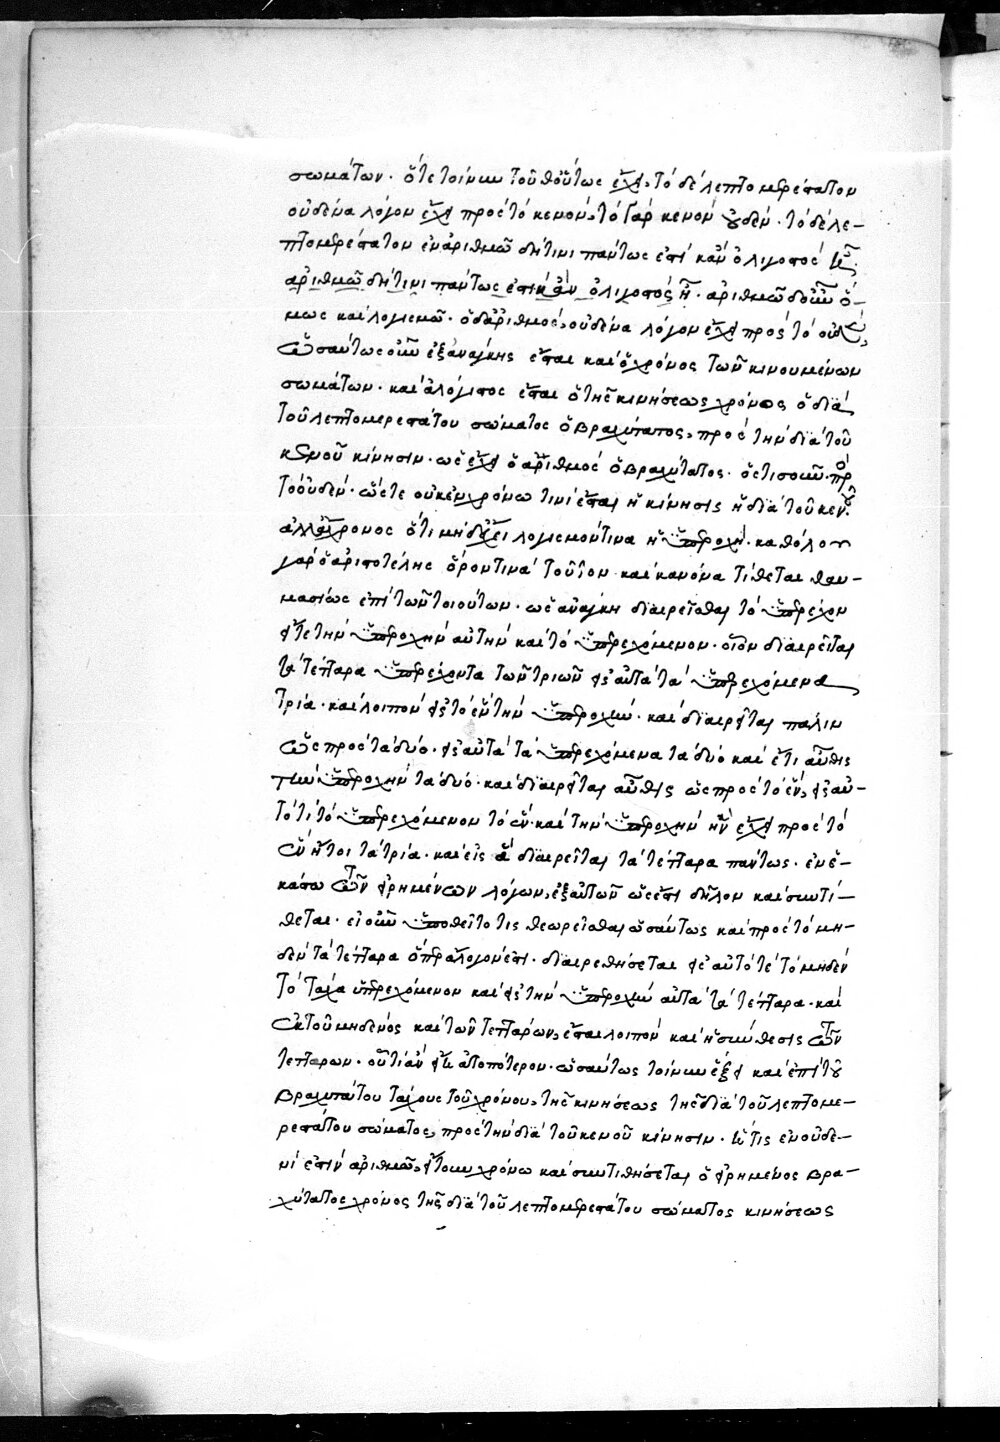 σωμάτων. ὅτε τοίνυν τοῦθ' οὕτως ἔχει, τὸ δὲ λεπτομερέστατον
οὐδένα λόγον ἔχει πρὸς τὸ κενόν, τὸ γὰρ κενὸν οὐδέν. τὸ δὲ λε-
πτομερέστατον ἐν ἀριθμῶ δή τινι πάντως ἐστὶ κἂν ὀλιγοστὸς ᾖ.
ἀριθμῶ δή τινι πάντως ἐστὶ κἂν ὀλιγοστὸς ᾖ. ἀριθμῶ δ' οὖν ὅ-
μως καὶ λογισμῶ. ὁ δ' ἀριθμὸς, οὐδένα λόγον ἔχει πρὸς τὸ οὐδέν,
ὡσαύτως οὖν ἐξανάγκης ἔσται καὶ ὁ χρόνος τῶν κινουμένων
σωμάτων. καὶ ἀλόγιστος ἔσται ὁ τῆς κινήσεως χρόνος ὁ διὰ
τοῦ λεπτομερεστάτου σώματος ὁ βραχύτατος, πρὸς τὴν διὰ τοῦ
κενοῦ κίνησιν. ὡς ἔχει ὁ ἀριθμὸς ὁ βραχύτατος. ὅστις οὖν πρὸς
τὸ οὐδέν. ὥστε οὐκ ἐν χρόνω τινὶ ἔσται ἡ κίνησις ἡ διὰ τοῦ κενοῦ.
ἀλλ' ἄχρονος ὅτι μὴ δ' ἔχει λογισμόν τινα ἡ ὑπεροχή. καθόλου
γὰρ ὁ ἀριστοτέλης ὅρον τινὰ τοῦτον καὶ κανόνα τίθεται θαυ-
μασίως ἐπὶ τῶν τοιούτων. ὡς ἀνάγκη διαιρεῖσθαι τὸ ὑπερέχον
εἴς τε τὴν ὑπεροχὴν αὐτὴν καὶ τὸ ὑπερεχόμενον. οἷον διαιρεῖται
τὰ τέτταρα ὑπερέχοντα τῶν τριῶν εἰς αὐτὰ τὰ ὑπερεχόμενα
τρία. καὶ λοιπὸν εἰς τὸ ἓν τὴν ὑπεροχήν. καὶ διαιρεῖται πάλιν
ὡς πρὸς τὰ δύο. εἰς αὐτὰ τὰ ὑπερεχόμενα τὰ δύο καὶ ἔτι αὖθις
τὴν ὑπεροχὴν τὰ δύο. καὶ διαιρεῖται αὖθις ὡς πρὸς τὸ ἕν, εἰς αὐ-
τό τι τὸ ὑπερεχόμενον τὸ ἕν. καὶ τὴν ὑπεροχὴν ἣν ἔχει πρὸς τὸ
ἓν ἤτοι τὰ τρία. καὶ εἰς ἃ διαιρεῖται τὰ τέτταρα πάντως. ἐν ἑ-
κάστω τῶν εἰρημένων λόγων, ἐξ αὐτῶν ὥς ἐστι δῆλον καὶ συντί-
θεται. εἰ οὖν ὑποθεῖτό τις θεωρεῖσθαι ὡσαύτως καὶ πρὸς τὸ μη-
δὲν τὰ τέτταρα ὅπερ ἄλογόν ἐστι. διαιρεθήσεται εἰς αὐτό τε τὸ μηδὲν
τὸ τάχα ὑπερεχόμενον καὶ εἰς τὴν ὑπεροχὴν αὐτὰ τὰ τέτταρα. καὶ
ἐκ τοῦ μηδενὸς καὶ τῶν τεττάρων, ἔσται λοιπὸν καὶ ἡ σύνθεσις τῶν
τεττάρων. οὗ τί ἂν εἴη ἀτοπώτερον. ὡσαύτως τοίνυν ἕξει καὶ ἐπὶ τοῦ
βραχυτάτου τάχους τοῦ χρόνου, τῆς κινήσεως τῆς διὰ τοῦ λεπτομε-
ρεστάτου σώματος, πρὸς τὴν διὰ τοῦ κενοῦ κίνησιν. ἥτις ἐν οὐδε-
νί ἐστιν ἀριθμῶ, εἴτουν χρόνω καὶ συντιθήσεται ὁ εἰρημένος βρα-
χύτατος χρόνος τῆς διὰ τοῦ λεπτομερεστάτου σώματος κινήσεως